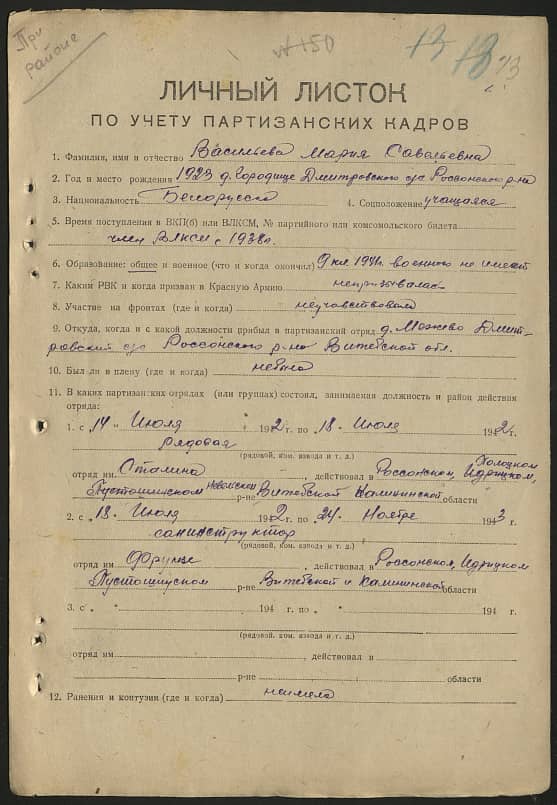 При
районе
№ 150
13 13 93
ЛИЧНЫЙ ЛИСТОК
ПО УЧЕТУ ПАРТИЗАНСКИХ КАДРОВ
1. Фамилия, имя и отчество Васильева Мария Савельевна
2. Год и место рождения 1923 д. Городище Дмитровского с/с Россонского р-на
3. Национальность Белорусска 4. Соцположение учащаяся
5. Время поступления в ВКП(б) или ВЛКСМ, № партийного или комсомольского билета
член ВЛКСМ с 1938г.
6. Образование: общее и военное (что и когда окончил) 9 кл 1941г. военного не имеет
7. Каким РВК и когда призван в Красную Армию непризывалась
8. Участие на фронтах (где и когда) неучавствовала
9. Откуда, когда и с какой должности прибыл в партизанский отряд д. Можево Дмит-
ровский с/с Россонского р-на Витебской обл.
10. Был ли в плену (где и когда) небыла
11. В каких партизанских отрядах (или группах) состоял, занимаемая должность и район действия
отряда:
1. с „14“ Июля 1942 г. по „18. Июля 1942 г.
рядовая
(рядовой, ком. взвода и т. д.)
отряд им Сталина, действовал в Россонском, Полоцком, Идрицком,
Пустошинском Невельском р-не Витебской Калининской области
2. с „18. Июля 1942 г. по „24. Ноября 1943 г.
санинструктор
(рядовой, ком. взвода и т. д.)
отряд им Фрунзе, действовал в Россонском, Идрицком
Пустошинском р-не Витебской и Калининской области
3. с „ “ 194 г. по „ “ 194 г.
(рядовой, ком. взвода и т. д.)
отряд им , действовал в
р-не области
12. Ранения и контузии (где и когда) неимела